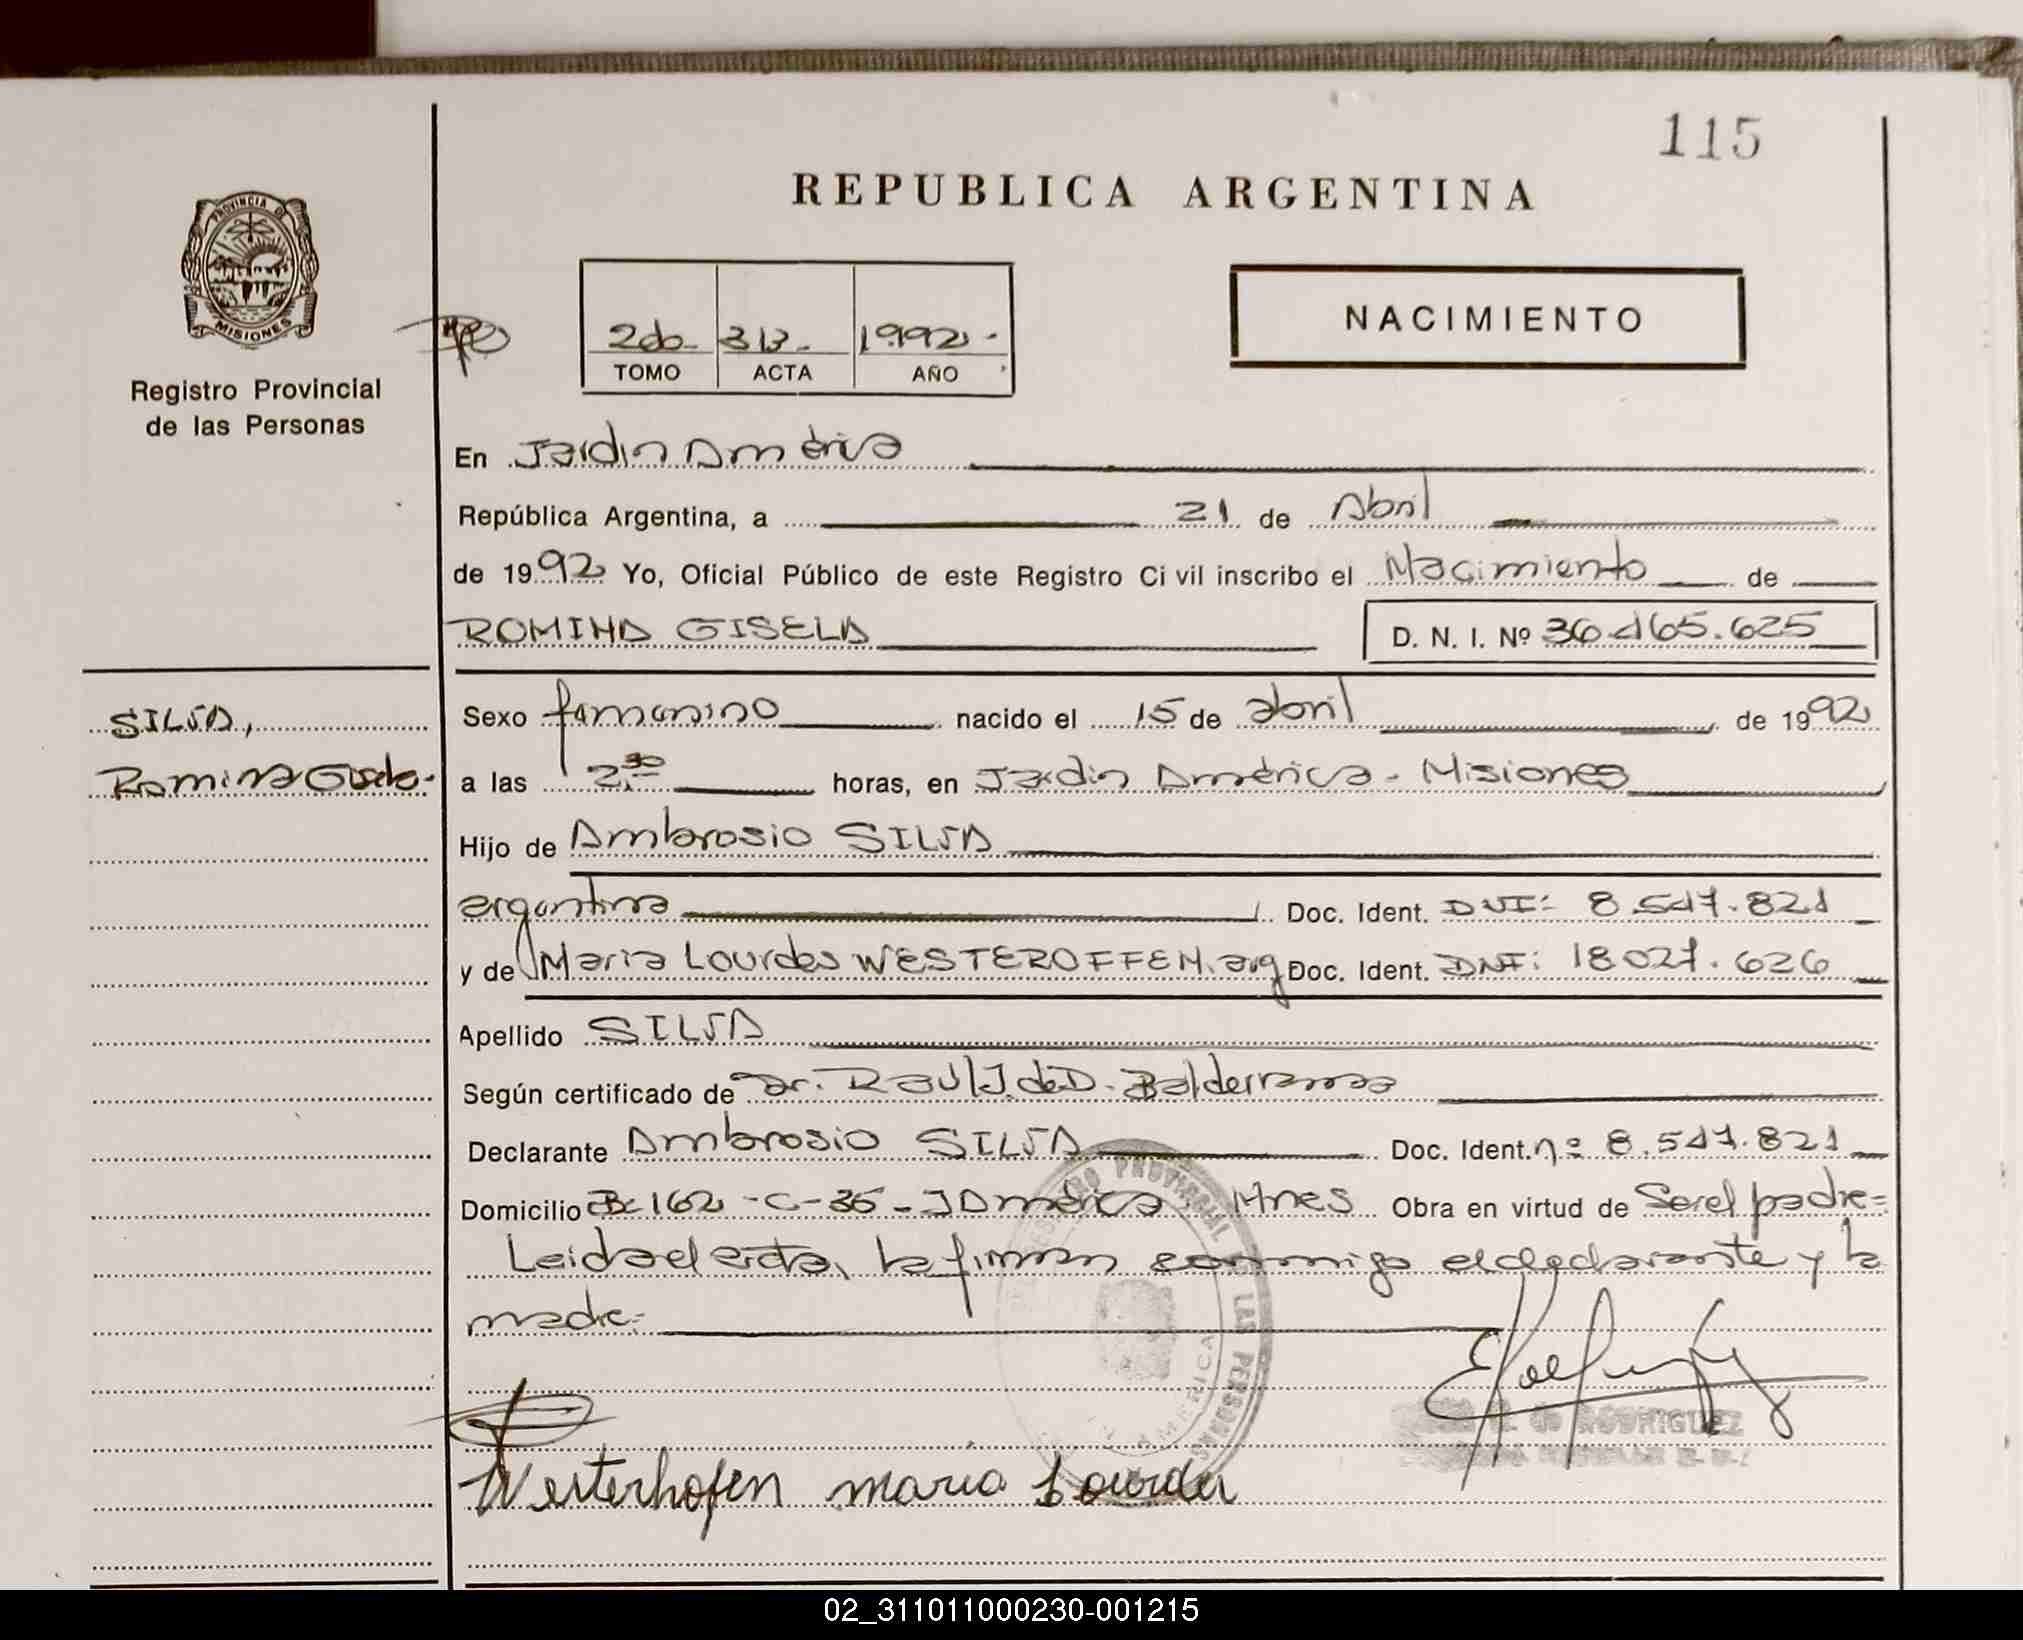 115
REPUBLICA ARGENTINA
PROVINCIA DE
MISIONES
Registro Provincial
de las Personas
2do. 313. 1992.-
TOMO ACTA AÑO
NACIMIENTO
En Jardin América
República Argentina, a 21 de Abril
de 1992 Yo, Oficial Público de este Registro Civil inscribo el Nacimiento de
ROMINA GISELA D. N. I. Nº 36.465.625
SILVA,
Romina Gisela.
Sexo femenino nacido el 15 de abril de 1992
a las 2,30 horas, en Jardin América - Misiones
Hijo de Ambrosio SILVA
argentina Doc. Ident. DNI: 8.547.821
y de Maria Lourdes WESTEROFFEN. arg Doc. Ident. DNI: 18 027.626
Apellido SILVA
Según certificado de Dr. Raul J. de D. Balderrama
Declarante Ambrosio SILVA Doc. Ident. nº 8.547.821
Domicilio Bº 162 - C-36 - J América Mnes Obra en virtud de Ser el padre=
Leida el acta, la firman conmigo el declarante y la
madre.-
REGISTRO PROVINCIAL DE LAS PERSONAS
AMERICA
RODRIGUEZ
Westerhofen maria Lourdes
02_311011000230-001215